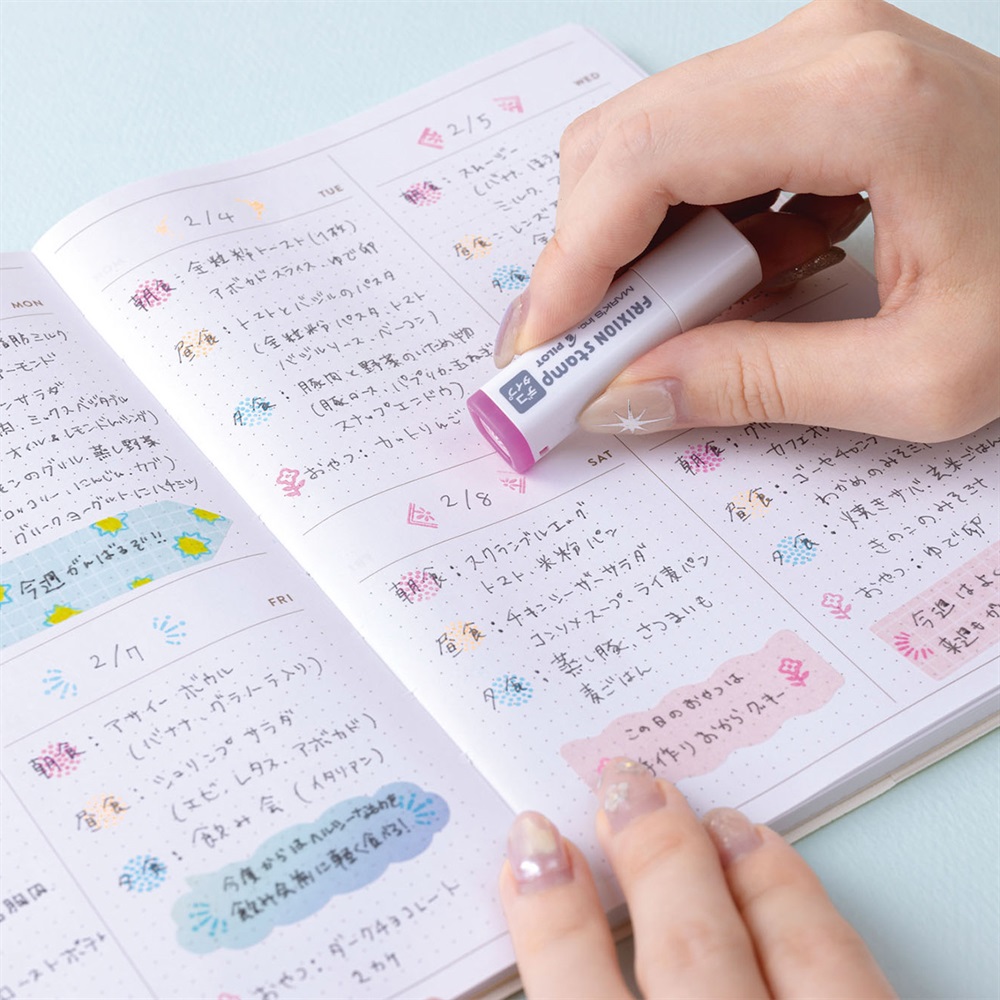 MON
脂肪ミルク
アーモンド
ンサラダ
ミックスベジタブル
オイル&レモンドレッシング)
モンのグリル、蒸し野菜
ブロッコリー・にんじん・カブ)
グリークヨーグルトにハチミツ
今週がんばるぞ!!
TUE
2/4
朝食:全粒粉トースト(1枚)
アボカドスライス・ゆで卵
昼食:トマトとバジルのパスタ
(全粒粉パスタ・トマト
バジルソース・ベーコン)
夕食:豚肉と野菜のいため物
(豚ロース・パプリカ・玉ねぎ
スナップエンドウ)
おやつ:カットりんご
WED
2/5
朝食:スムージー
(バナナ、ほうれ
ミルク、
昼食:
夕食:
FRI
2/7
朝食:アサイーボウル
(バナナ・グラノーラ入り)
昼食:シュリンプサラダ
(エビ、レタス、アボカド)
夕食:飲み会(イタリアン)
今度からはヘルシーなお店で
飲み会前に軽く食べる!
おやつ:ダークチョコレート
2カケ
ローストポテト
SAT
2/8
朝食:スクランブルエッグ
トースト・米粉パン
昼食:チキンシーザーサラダ
コンソメスープ、ライ麦パン
夕食:蒸し豚、さつまいも
麦ごはん
この日のおやつは
手作りおからクッキー
朝食:
カフェオレ
昼食:ゴーヤチャンプ
わかめのみそ汁
夕食:焼きサバ・玄米ごはん
きのこのみそ汁
おやつ:ゆで卵
今週はよく
来週も
FRIXION stamp
デコ
タイプ
MARK'S Inc. PILOT